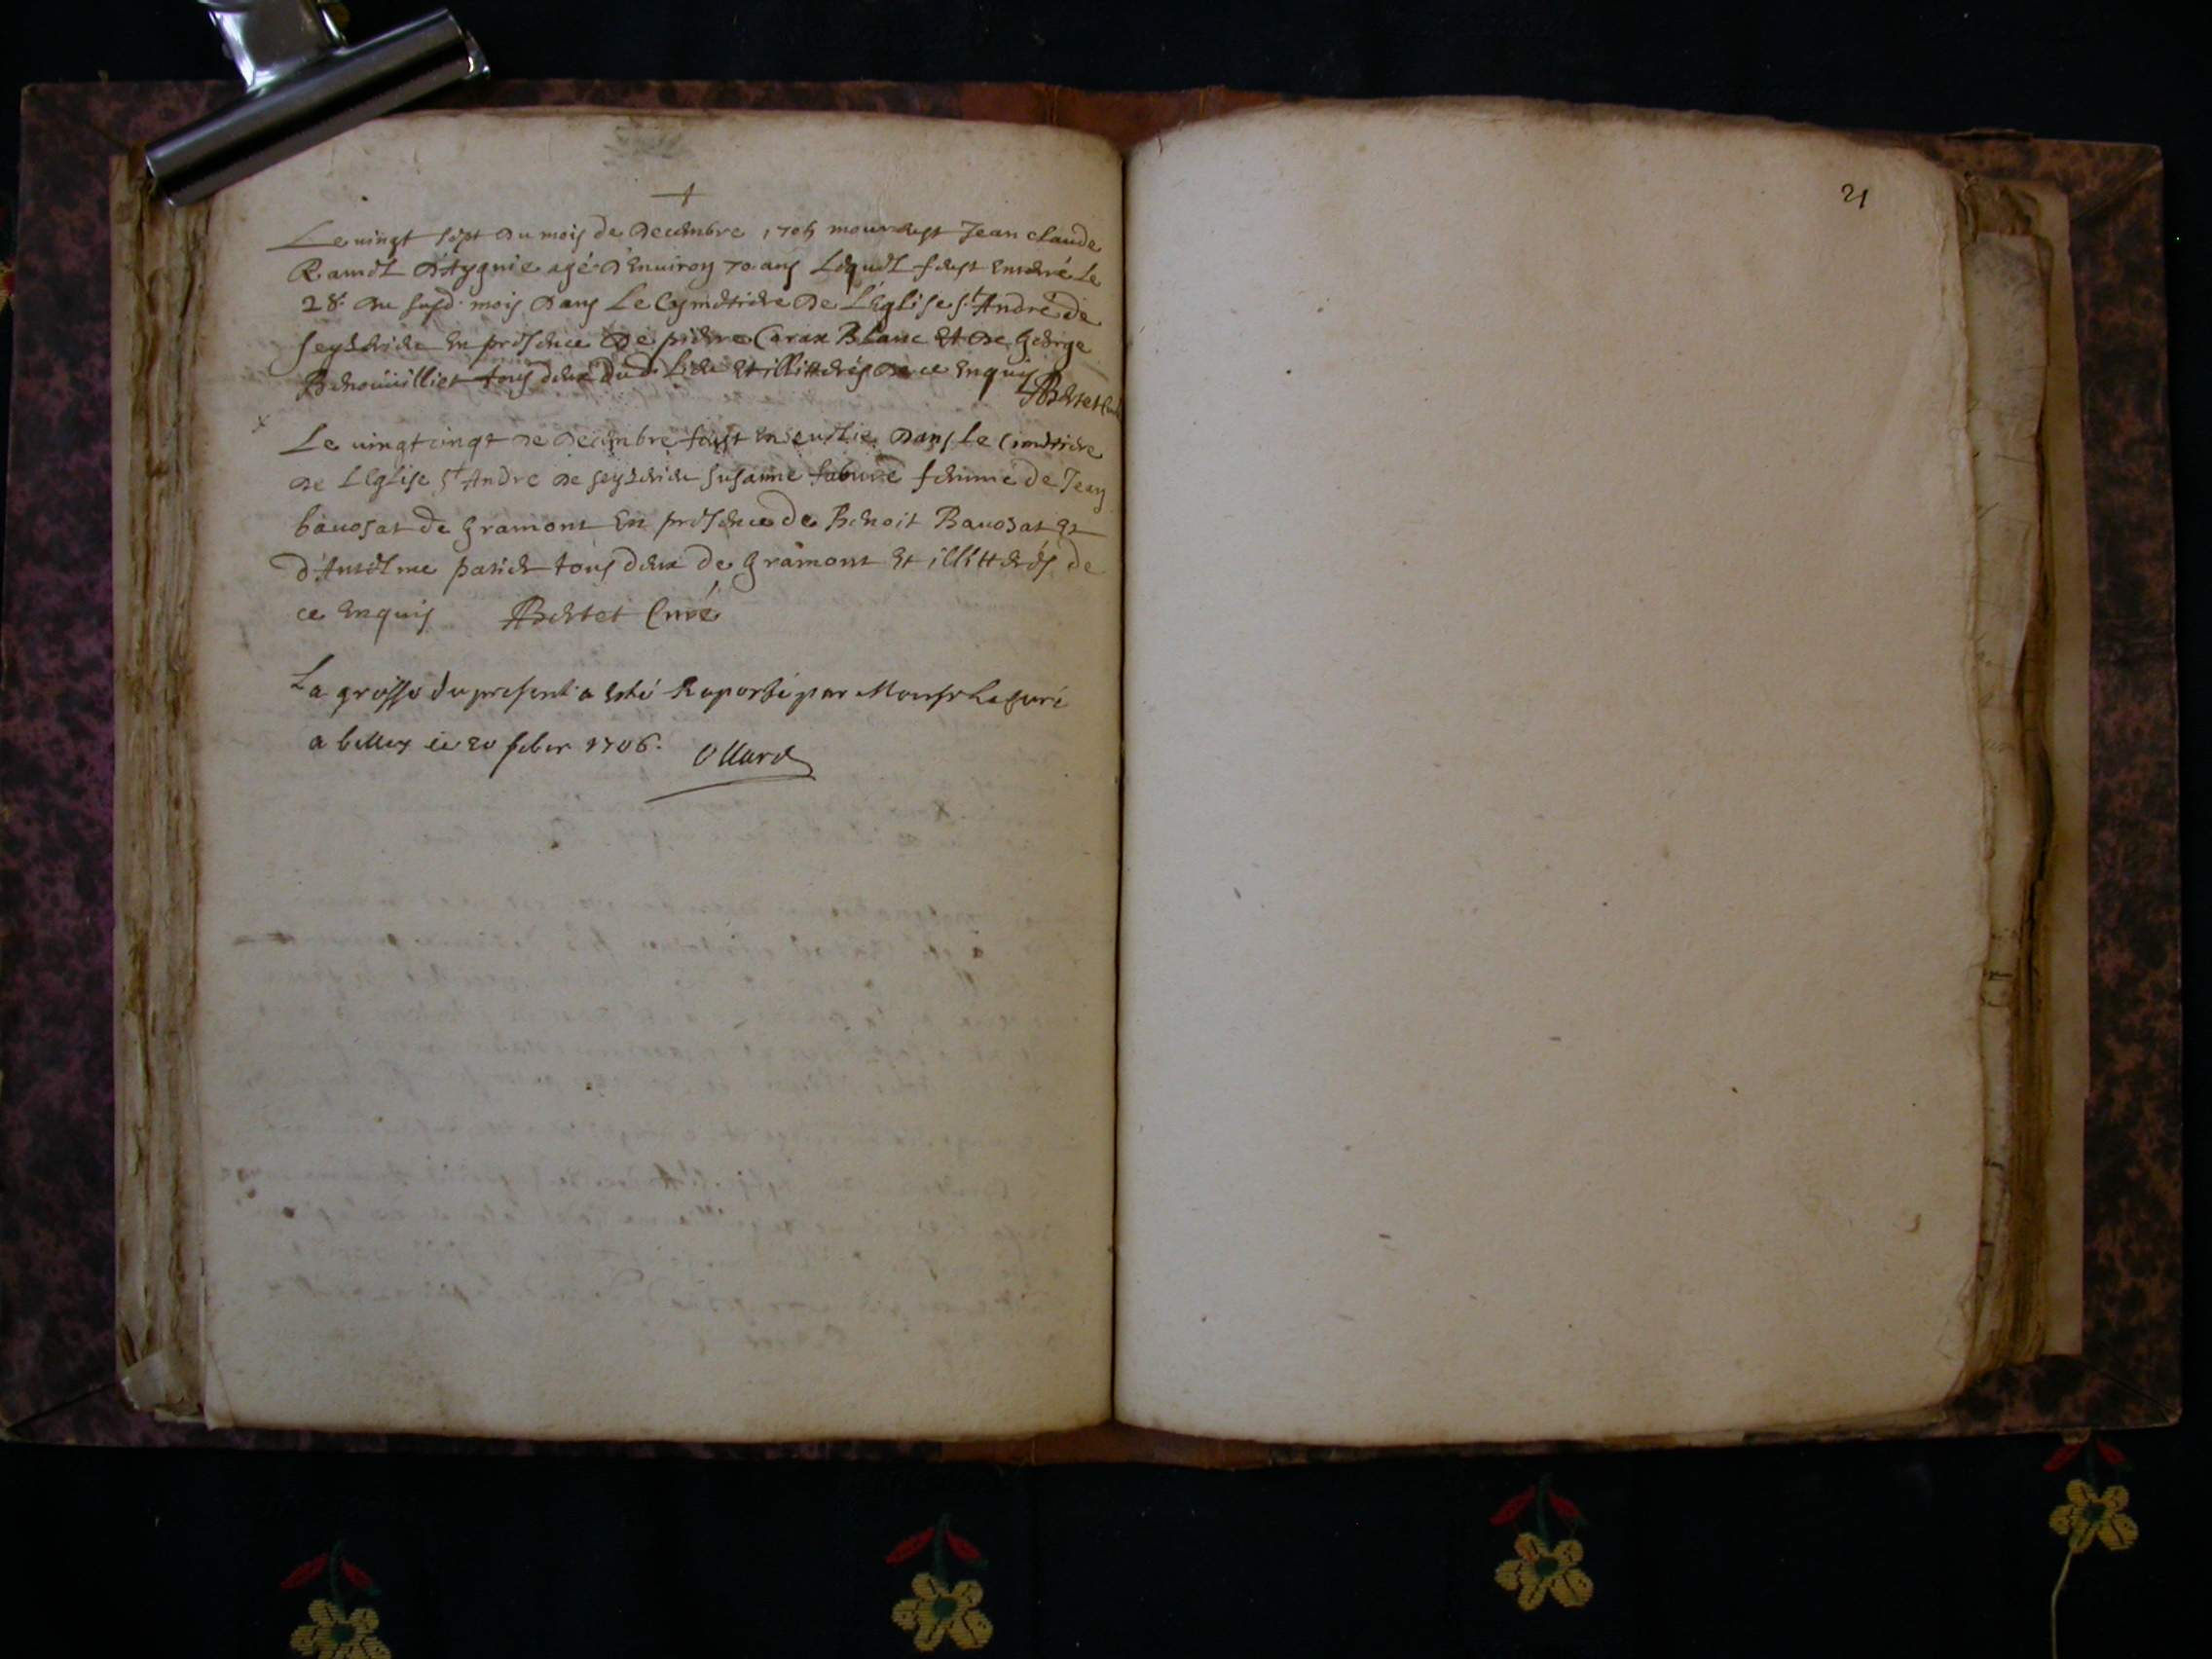 Le uingt sept du mois de decembre 1705 mourust Jean claude
Ramel d'Aygnie agé d'enuiron 70 ans Lequel fust enterré Le
28. du susd. mois dans Le Cymetiere de L'Eglise St André de
Seyzerieu en presence de pierre Carax Blanc et de George
tous deux dud. Lieu et illitterés de ce enquis
ABertet Curé
Le uingtcinqt de decembre fust enseuelie dans le Cimetiere
de L'Eglise St André de Seyzerieu Susanne fabure femme de Jean
bauosat de Gramont en presence de Benoit Bauosat et
d'Antelme patier tous deux de Gramont et illitterés de
ce enquis ABertet Curé
La grosse du present a esté Raporté par Monsr Le Curé
a belley ce 20 feber 1706. Ollard
21